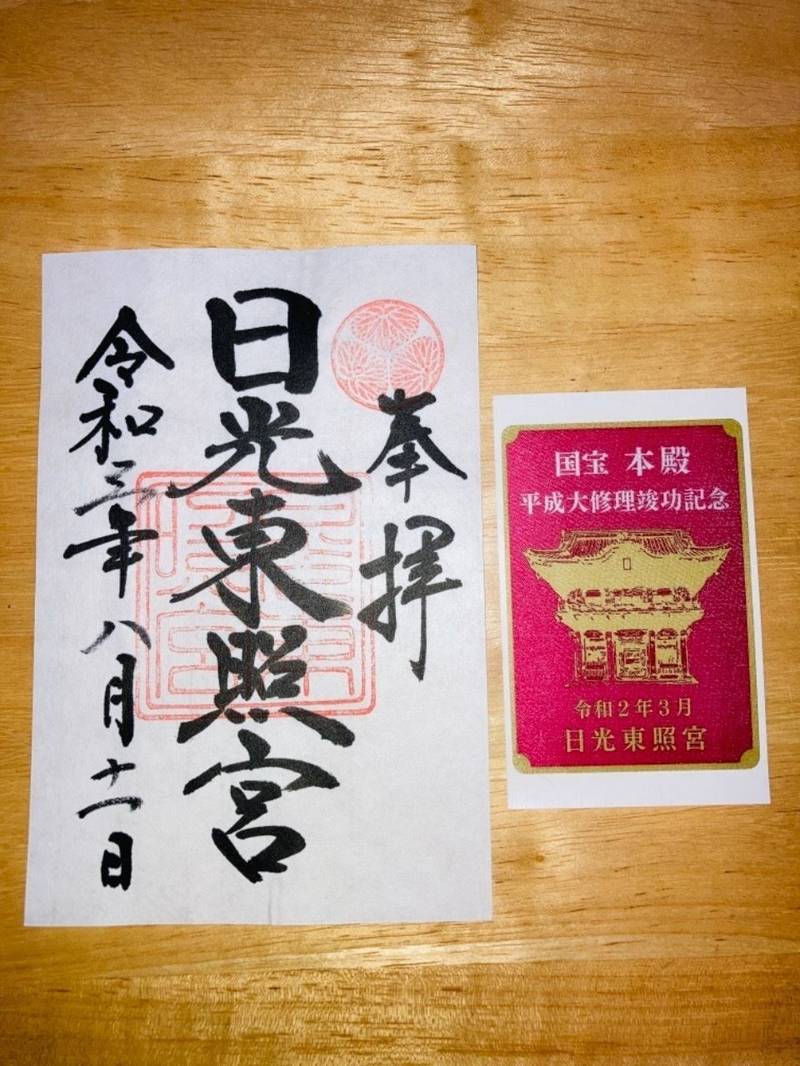 奉拝
日光東照宮
令和三年八月十一日
国宝 本殿
平成大修理竣功記念
令和2年3月
日光東照宮